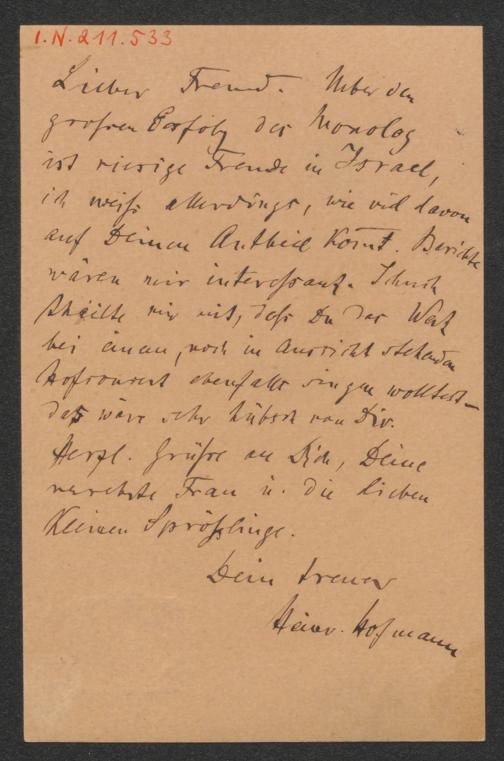 I.N. 211.533
Lieber Freund. Über den
großen Erfolg des Monolog
ist riesige Freude in Israel,
ich weiß allerdings, wie viel davon
auf Deinen Antheil kom̅t. Berichte
wären mir interessant.
theilte mir mit, daß Du das Werk
bei einem, noch in Aussicht stehenden
Hofconcert ebenfalls singen wolltest –
das wäre sehr hübsch von Dir.
Herzl. Grüße an Dich, Deine
verehrte Frau u. die lieben
kleinen Sprößlinge.
Dein treuer
Heinr. Hofmann